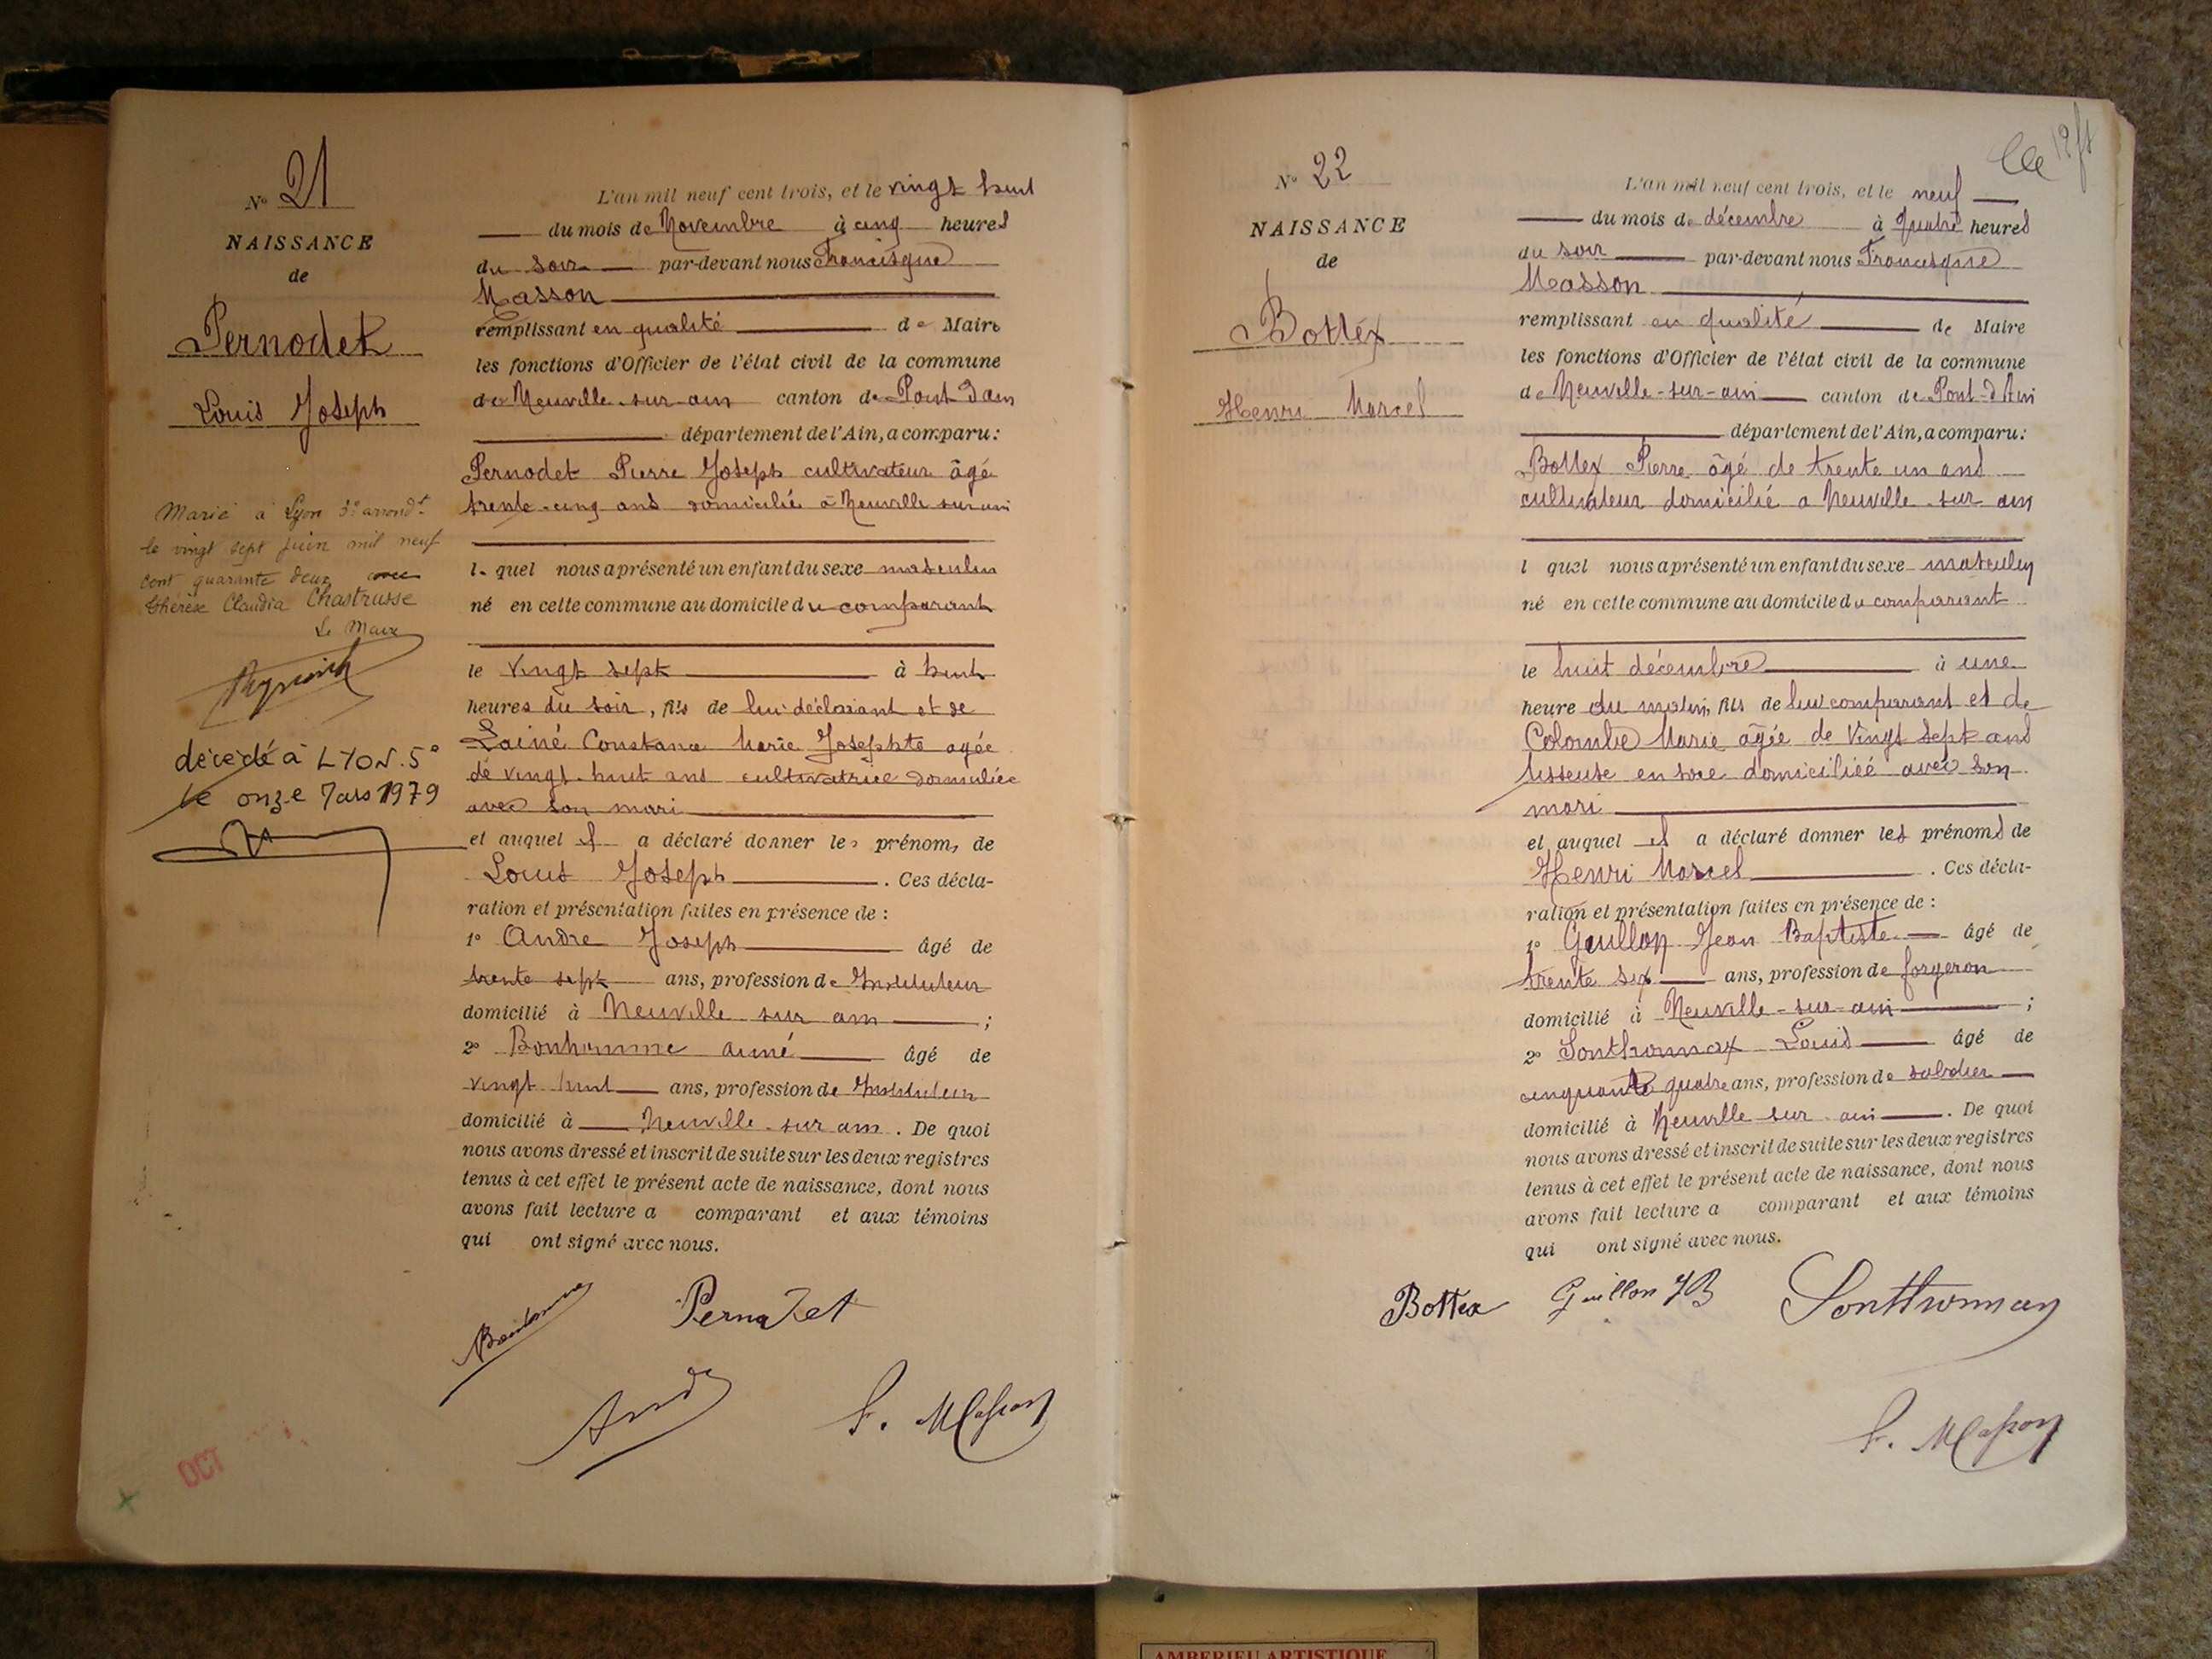 N° 21
NAISSANCE
de
Pernodet
Louis Joseph
Marié à Lyon 3e arrondt
le vingt sept juin mil neuf
cent quarante deux avec
Thérèse Claudia Chastrusse
Le Maire
décédé à LYON. 5°
le onze Mars 1979
L'an mil neuf cent trois, et le vingt huit
du mois de Novembre à cinq heures
du soir par-devant nous Francisque
Masson
remplissant en qualité de Maire
les fonctions d'Officier de l'état civil de la commune
de Neuville-sur-ain canton de Pont d'ain
département de l'Ain, a comparu :
Pernodet Pierre Joseph cultivateur âgé
trente-cinq ans domicilié à Neuville sur ain
lequel nous a présenté un enfant du sexe masculin
né en cette commune au domicile du comparant
le vingt sept à huit
heures du soir, fils de lui déclarant et de
Lainé Constance Marie Josephte agée
de vingt-huit ans cultivatrice domiciliée
avec son mari
et auquel il a déclaré donner les prénoms de
Louis Joseph. Ces décla-
ration et présentation faites en présence de :
1° André Joseph âgé de
trente sept ans, profession de Instituteur
domicilié à Neuville sur ain ;
2° Bonhomme aimé âgé de
vingt huit ans, profession de Instituteur
domicilié à Neuville-sur ain. De quoi
nous avons dressé et inscrit de suite sur les deux registres
tenus à cet effet le présent acte de naissance, dont nous
avons fait lecture a comparant et aux témoins
qui ont signé avec nous.
Bonhomme Pernodet
André F. Masson
OCT
N° 22
NAISSANCE
de
Bottex
Henri Marcel
L'an mil neuf cent trois, et le neuf
du mois de décembre à Quatre heures
du soir par-devant nous Francisque
Masson
remplissant en qualité de Maire
les fonctions d'Officier de l'état civil de la commune
de Neuville-sur-ain canton de Pont-d'Ain
département de l'Ain, a comparu :
Bottex Pierre âgé de trente un ans
cultivateur domicilié a Neuville-sur ain
l quel nous a présenté un enfant du sexe masculin
né en cette commune au domicile du comparant
le huit décembre à une
heure du matin, fils de lui comparant et de
Colombe Marie âgée de Vingt Sept ans
tisseuse en soie domiciliée avec son
mari
et auquel il a déclaré donner les prénoms de
Henri Marcel. Ces décla-
ration et présentation faites en présence de :
1° Guillon Jean Baptiste âgé de
trente six ans, profession de forgeron
domicilié à Neuville-sur-ain ;
2° Sonthonnax Louis âgé de
cinquante quatre ans, profession de sabotier
domicilié à Neuville sur ain. De quoi
nous avons dressé et inscrit de suite sur les deux registres
tenus à cet effet le présent acte de naissance, dont nous
avons fait lecture a comparant et aux témoins
qui ont signé avec nous.
Bottex Guillon JB Sonthonnax
F. Masson
AMBERIEU ARTISTIQUE